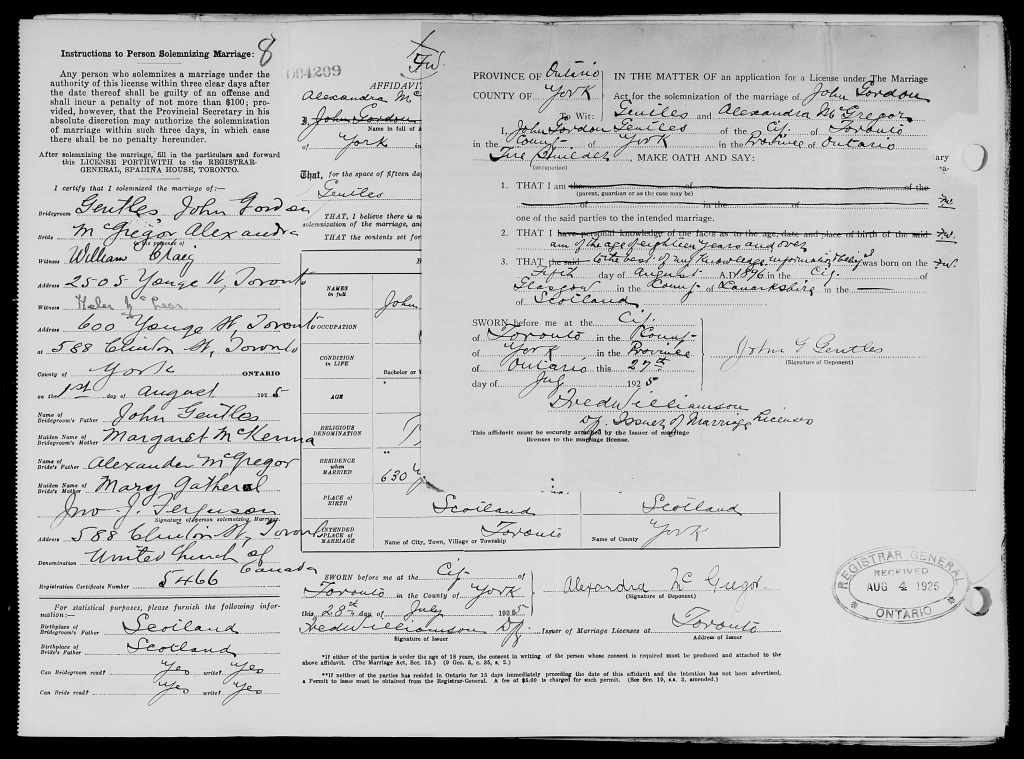 Instructions to Person Solemnizing Marriage: 8
Any person who solemnizes a marriage under the
authority of this license within three clear days after
the date thereof shall be guilty of an offense and
shall incur a penalty of not more than $100; pro-
vided, however, that the Provincial Secretary in his
absolute discretion may authorize the solemnization
of marriage within such three days, in which case
there shall be no penalty hereunder.
After solemnizing the marriage, fill in the particulars and forward
this LICENSE FORTHWITH to the REGISTRAR-
GENERAL, SPADINA HOUSE, TORONTO.
I certify that I solemnized the marriage of:—
Bridegroom Gentles, John Gordon
Bride McGregor Alexandra
in the presence of
Witness William Craig
Address 2505 Yonge St, Toronto
Witness
Address 600 Yonge St, Toronto
at 588 Clinton St, Toronto
County of York ONTARIO
on the 1st day of August 1925
Name of Bridegroom's Father John Gentles
Maiden Name of Bridegroom's Mother Margaret McKenna
Name of Bride's Father Alexander McGregor
Maiden Name of Bride's Mother Mary Gatheral
Jno. J. Ferguson
Signature of person solemnizing Marriage
Address 588 Clinton St, Toronto
Denomination United Church of Canada
Registration Certificate Number 5466
For statistical purposes, please furnish the following infor-
mation:—
Birthplace of Bridegroom's Father Scotland
Birthplace of Bride's Father Scotland
Can Bridegroom read? Yes write? Yes
Can Bride read? Yes write? Yes
004299
Fw.
AFFIDAVIT
Alexandra Mc
I, John Gordon
Name in full of
of York in
That, for the space of fifteen day
Gentles
THAT, I believe there is n
solemnization of the marriage, and
THAT the contents set for
NAMES in full
John
OCCUPATION
CONDITION in LIFE
Bachelor or
AGE
RELIGIOUS DENOMINATION
RESIDENCE when MARRIED
630
PLACE of BIRTH Scotland Scotland
INTENDED PLACE of MARRIAGE Toronto York
Name of City, Town, Village or Township Name of County
SWORN before me at the City of
Toronto in the County of York
this 28th day of July 1925
Fred Williamson Dy. Issuer of Marriage Licenses at Toronto
Signature of Issuer Address of Issuer
Alexandra McGregor
(Signature of Deponent)
*If either of the parties is under the age of 18 years, the consent in writing of the person whose consent is required must be produced and attached to the
above affidavit. (The Marriage Act, Sec. 15.) (9 Geo. 5, c. 35, s. 2.)
**If neither of the parties has resided in Ontario for 15 days immediately preceding the date of this affidavit and the intention has not been advertised,
a Permit to issue must be obtained from the Registrar-General. A fee of $5.00 is charged for such permit. (See Sec. 19, s.s. 3, amended.)
PROVINCE OF Ontario
COUNTY OF York
To Wit:
IN THE MATTER OF an application for a License under The Marriage
Act for the solemnization of the marriage of John Gordon
Gentles and Alexandra McGregor
I, John Gordon Gentles of the City of Toronto
in the County of York in the Province of Ontario
Tire Builder, MAKE OATH AND SAY:
(occupation)
1. THAT I am the of of the
(parent, guardian or as the case may be)
of in the of Fw.
one of the said parties to the intended marriage.
2. THAT I have personal knowledge of the facts as to the age, date and place of birth of the said Fw.
am of the age of eighteen years and over
3. THAT the said to the best of my knowledge, information & belief I was born on the Fw.
Fifth day of August A.D. 1896 in the City of
Glasgow in the County of Lanarkshire in the
of Scotland
SWORN before me at the City
of Toronto in the County
of York in the Province
of Ontario this 27th
day of July 1925
John G Gentles
(Signature of Deponent)
Fred Williamson
Dy. Issuer of Marriage Licenses
This affidavit must be securely attached by the issuer of marriage
licenses to the marriage license.
ary
ea-
REGISTRAR GENERAL
RECEIVED
AUG 4 1925
ONTARIO